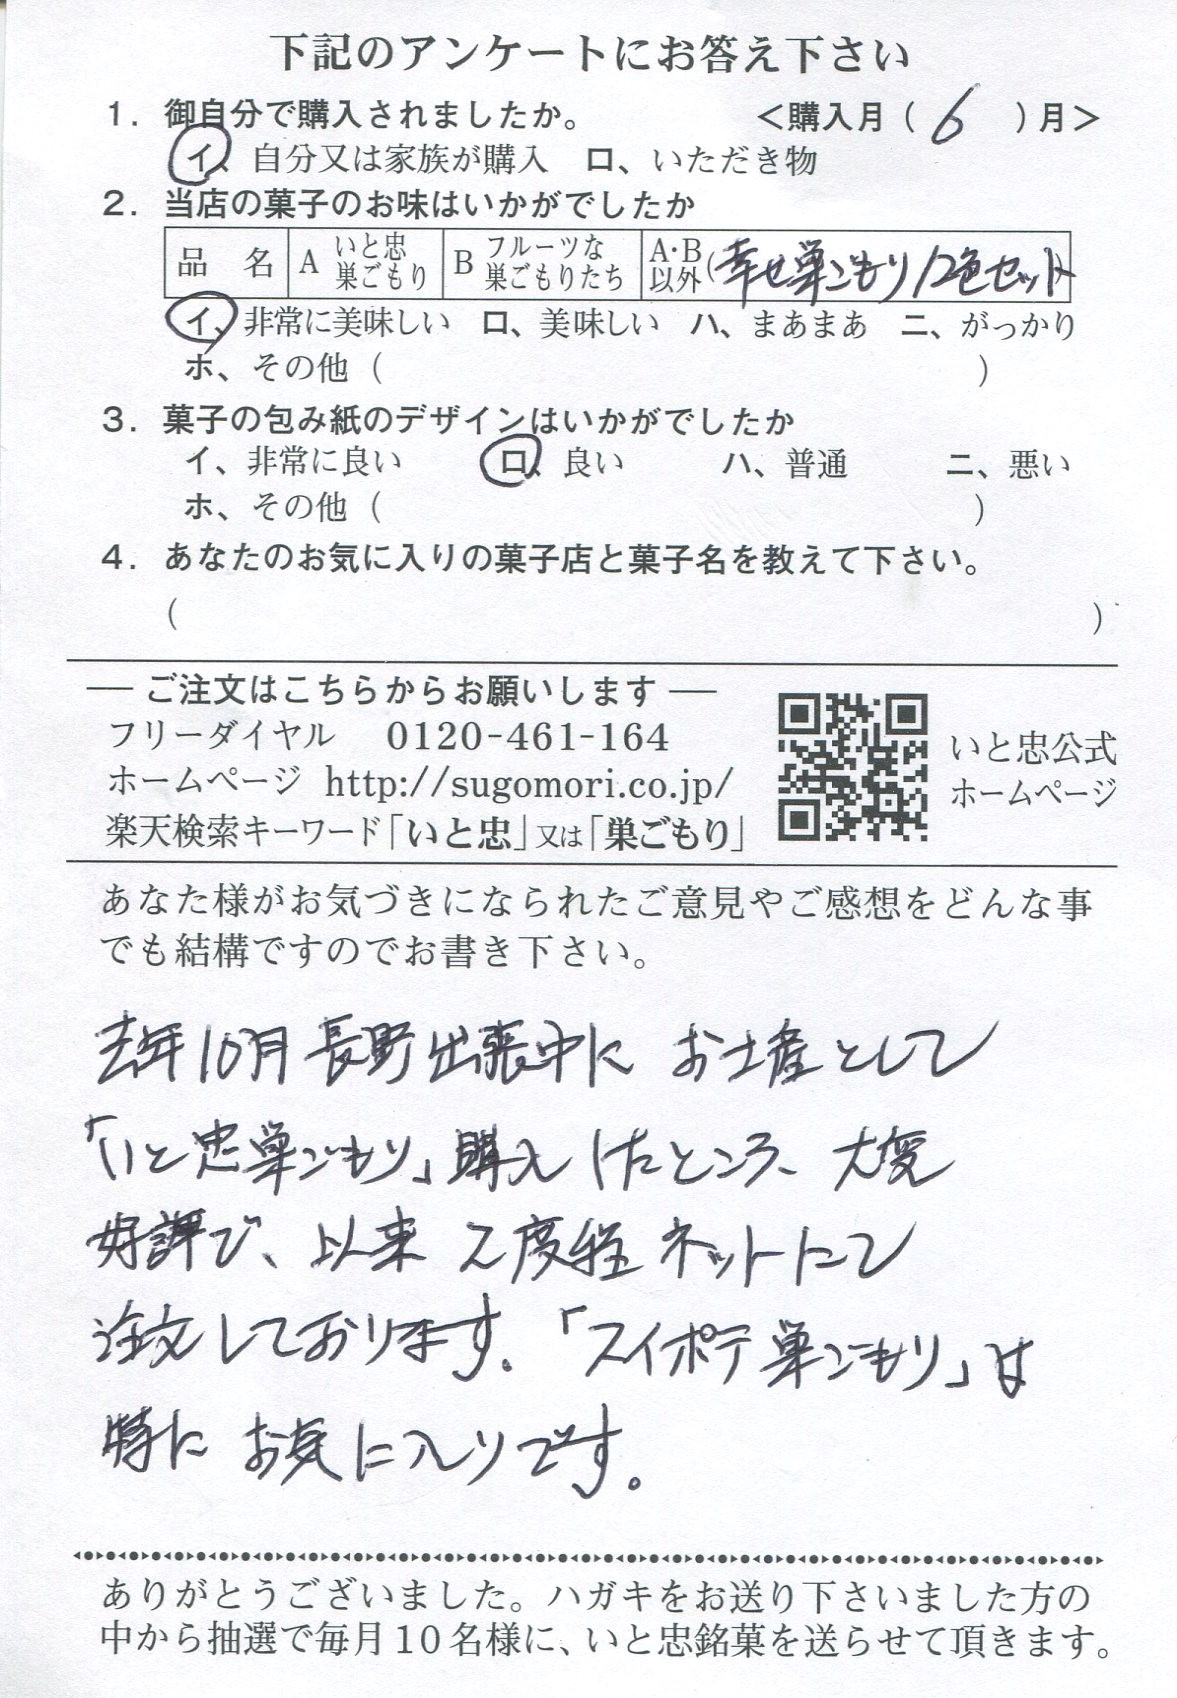 下記のアンケートにお答え下さい
1. 御自分で購入されましたか。 <購入月(6)月>
イ、自分又は家族が購入 ロ、いただき物
2. 当店の菓子のお味はいかがでしたか
品 名 A いと忠巣ごもり B フルーツな巣ごもりたち A・B以外(幸せ巣ごもり12色セット
イ、非常に美味しい ロ、美味しい ハ、まあまあ ニ、がっかり
ホ、その他( )
3. 菓子の包み紙のデザインはいかがでしたか
イ、非常に良い ロ、良い ハ、普通 ニ、悪い
ホ、その他( )
4. あなたのお気に入りの菓子店と菓子名を教えて下さい。
( )
― ご注文はこちらからお願いします ―
フリーダイヤル 0120-461-164
ホームページ http://sugomori.co.jp/
楽天検索キーワード「いと忠」又は「巣ごもり」
いと忠公式
ホームページ
あなた様がお気づきになられたご意見やご感想をどんな事
でも結構ですのでお書き下さい。
去年10月長野出張中に お土産として
「いと忠巣ごもり」購入したところ、大変
好評で、以来 2度程 ネットにて
注文しております。「スイポテ巣ごもり」は
特に お気に入りです。
ありがとうございました。ハガキをお送り下さいました方の
中から抽選で毎月10名様に、いと忠銘菓を送らせて頂きます。